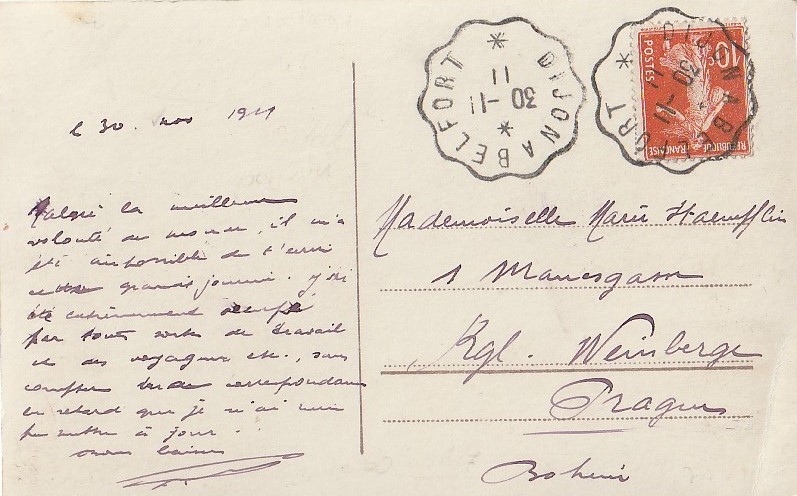 le 30. nov 1911
Malgré la meilleure
volonté du monde, il m'a
été impossible de t'écrire
cette grande journée. J'ai
été entièrement occupé
par toute sorte de travail
et des voyageurs etc., sans
compter de correspondance
en retard que je n'ai
mettre à jour.
DIJON A BELFORT
30-11
11
DIJON A BELFORT
30-11
11
10c
POSTES
REPUBLIQUE FRANÇAISE
Mademoiselle Marie Haempflin
1 Manesgasse
Kgl. Weinberge
Prague
Bohême